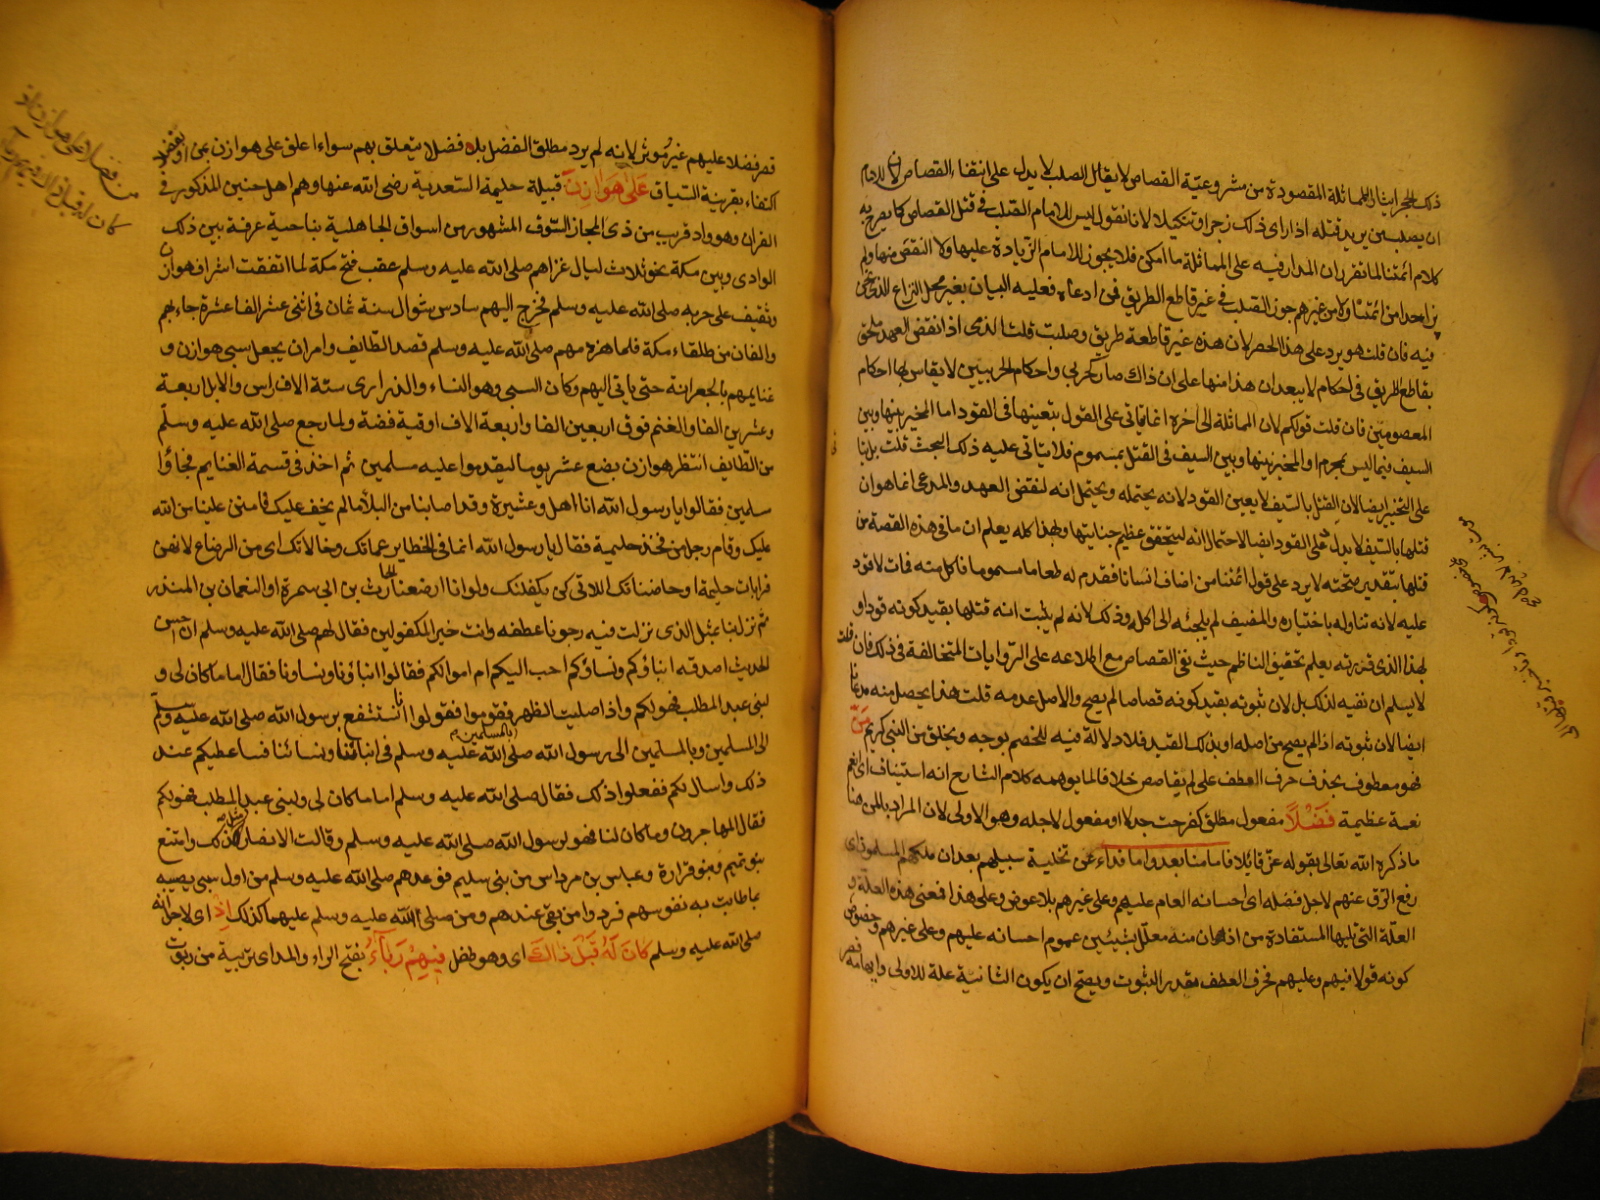 ذلك للحجر ايثارا للمماثلة المقصودة من مشروعية القصاص لا يقال الصلب لا يدل على انتقاء القصاص لان للامام
ان يصلب من يريد قتله اذا راى ذلك زجرا وتنكيلا لانا نقول ليس للامام الصلب في قتل القصاص كما يصرح به
كلام ائمتنا لما تقرر ان المدار فيه على المماثلة ما امكن فلا يجوز للامام الزيادة عليها ولا النقص منها ولم
نر احدا من ائمتنا ولا من غيرهم جوز الصلب في غير قاطع الطريق فمن ادعاه فعليه البيان بغير محل النزاع الذي نحن
فيه فان قلت هو يرد على هذا الحصر لان هذه غير قاطعة طريق وصلبت قلت الذمي اذا نقض العهد ملحق
بقاطع الطريق في احكام لا يبعد ان هذا منها على ان ذاك صار كحربي واحكام الحربيين لا يقاس بها احكام
المعصومين فان قلت قولكم لان المماثلة الى اخره انما ياتي على القول بتعينها في القود اما المخير بينها وبين
السيف فيما ليس بمحرم او المخير بينها وبين السيف في القتل بمسموم فلا يتاتى عليه ذلك البحث قلت بل ياتي
على التخيير ايضا لان القتل بالسيف لا يعين القود لانه يحتمله ويحتمل انه لنقض العهد والمدعى انما هو ان
قتلها بالسيف لا يدل على القود ايضا لاحتمال انه ليتحقق عظيم جنايتها وبهذا كله يعلم ان ما في هذه القصة من
قتلها بتقدير صحته لا يرد على قول ائمتنا من اضاف انسانا فقدم له طعاما مسموما فاكل منه فات لا قود
عليه لانه تناوله باختياره والمضيف لم يلجئه الى اكله وذلك لانه لم يثبت انه قتلها بقيد كونه قودا و
لهذا الذي قررته يعلم تحقيق الناظم حيث نفى القصاص مع اطلاعه على الروايات المتخالفة في ذلك فان قلت
لا يسلم ان نفيه لذلك بل لان ثبوته بقيد كونه قصاصا لم يصح والاصل عدمه قلت هذا يحصل منه مدعانا
ايضا لان ثبوته اذا لم يصح من اصله او بذلك القيد فلا دلالة فيه للخصم بوجه وبخلق من النبي كريم مَنَّ
فهو معطوف بحذف حرف العطف على لم يقاصص خلافا لما يوهمه كلام الشارح انه استيناف اي انعم
نعمة عظيمة فَضْلًا مفعول مطلق كفرحت جدلا او مفعول لاجله وهو الاولى لان المراد بالمن هنا
ما ذكره الله تعالى بقوله عز قائلا فاما منا بعد واما فداء عن تخلية سبيلهم بعد ان ملكهم المسلمون اي
رفع الرق عنهم لاجل فضله اي احسانه العام عليهم وعلى غيرهم بلا عوض وعلى هذا فمعنى هذه العلة و
العلة التي تليها المستفادة من اذ كان منه معلل بشيئين عموم احسانه عليهم وعلى غيرهم وخصوص
كونه قولا فيهم وعليهم فحرف العطف مقدر الثبوت ويصح ان يكون الثانية علة للاولى وايهامه قصر
قصر فضلا عليهم غير مؤثر لانه لم يرد مطلق الفضل بل فضلا يتعلق بهم سواء اعلق على هوازن بمن او بفضلا
اكتفاء بقرينة السياق عَلَى هَوَازِنَ قبيلة حليمة السعدية رضى الله عنها وهم اهل حنين المذكور في
القران وهو واد قريب من ذى المجاز السوق المشهور من اسواق الجاهلية بناحية عرفة بين ذلك
الوادى وبين مكة نحو ثلاث ليال غزاهم صلى الله عليه وسلم عقب فتح مكة لما اتفقت اشراف هوازن
وثقيف على حربه صلى الله عليه وسلم فخرج اليهم سادس شوال سنة ثمان في اثنى عشر الفا عشرة جاء بهم
والفان من طلقاء مكة فلما هزم مهم صلى الله عليه وسلم قصد الطايف وامر ان يجعل سبي هوازن و
غنايمهم بالجعرانة حتى ياتي اليهم وكان السبى وهو النساء والذرارى ستة الاف راس والابل اربعة
وعشرين الفا والغنم فوق اربعين الفا واربعة الاف اوقية فضة ولما رجع صلى الله عليه وسلم
من الطايف انتظر هوازن بضع عشر يوما ليقدموا عليه مسلمين ثم اخذ في قسمة الغنايم فجاؤا
مسلمين فقالوا يا رسول الله انا اهل وعشيرة وقد اصابنا من البلاء ما لم يخف عليك فامنن علينا من الله
عليك وقام رجل من فخذ حليمة فقال يا رسول الله انما في الخطاير عماتك وخالاتك اى من الرضاع لانهن
قرابات حليمة او حاضناتك اللاتى كن يكفلنك ولو انا ارضعنا الحارث بن ابى سمرة او النعمان بن المنذر
ثم نزل بنا بمثل الذى نزلت فيه رجونا عطفه وانت خير المكفولين فقال لهم صلى الله عليه وسلم ان احسن
الحديث اصدقه ابناؤكم ونساؤكم احب اليكم ام اموالكم فقالوا ابناؤنا ونساونا فقال اما ما كان لى و
لبنى عبد المطلب فهو لكم واذا صليت الظهر فقوموا فقولوا انا نستشفع برسول الله صلى الله عليه وسلم
الى المسلمين وبالمسلمين الى رسول الله صلى الله عليه وسلم في ابنائنا ونسائنا فساعطيكم عند
ذلك واسال لكم ففعلوا ذلك فقال صلى الله عليه وسلم اما ما كان لى ولبنى عبد المطلب فهو لكم
فقال المهاجرون وما كان لنا فهو لرسول الله صلى الله عليه وسلم وقالت الانصار مثل ذلك وامتنع
بنو تميم وبنو فزارة وعباس بن مرداس من بنى سليم فوعدهم صلى الله عليه وسلم من اول سبى يصيبه
بما طابت به نفوسهم فردوا من بقى عندهم ومن صلى الله عليه وسلم عليهما كذلك اِذْ اى لاجل انه
صلى الله عليه وسلم كَانَ لَهُ قَبْلَ ذَاكَ اى وهو طفل فِيهِمْ رَبَاءُ بفتح الراء والمد اى تربية من ربوت
من فضلا على هوازن اذ
كان له قبل ذاك فيهم رباء